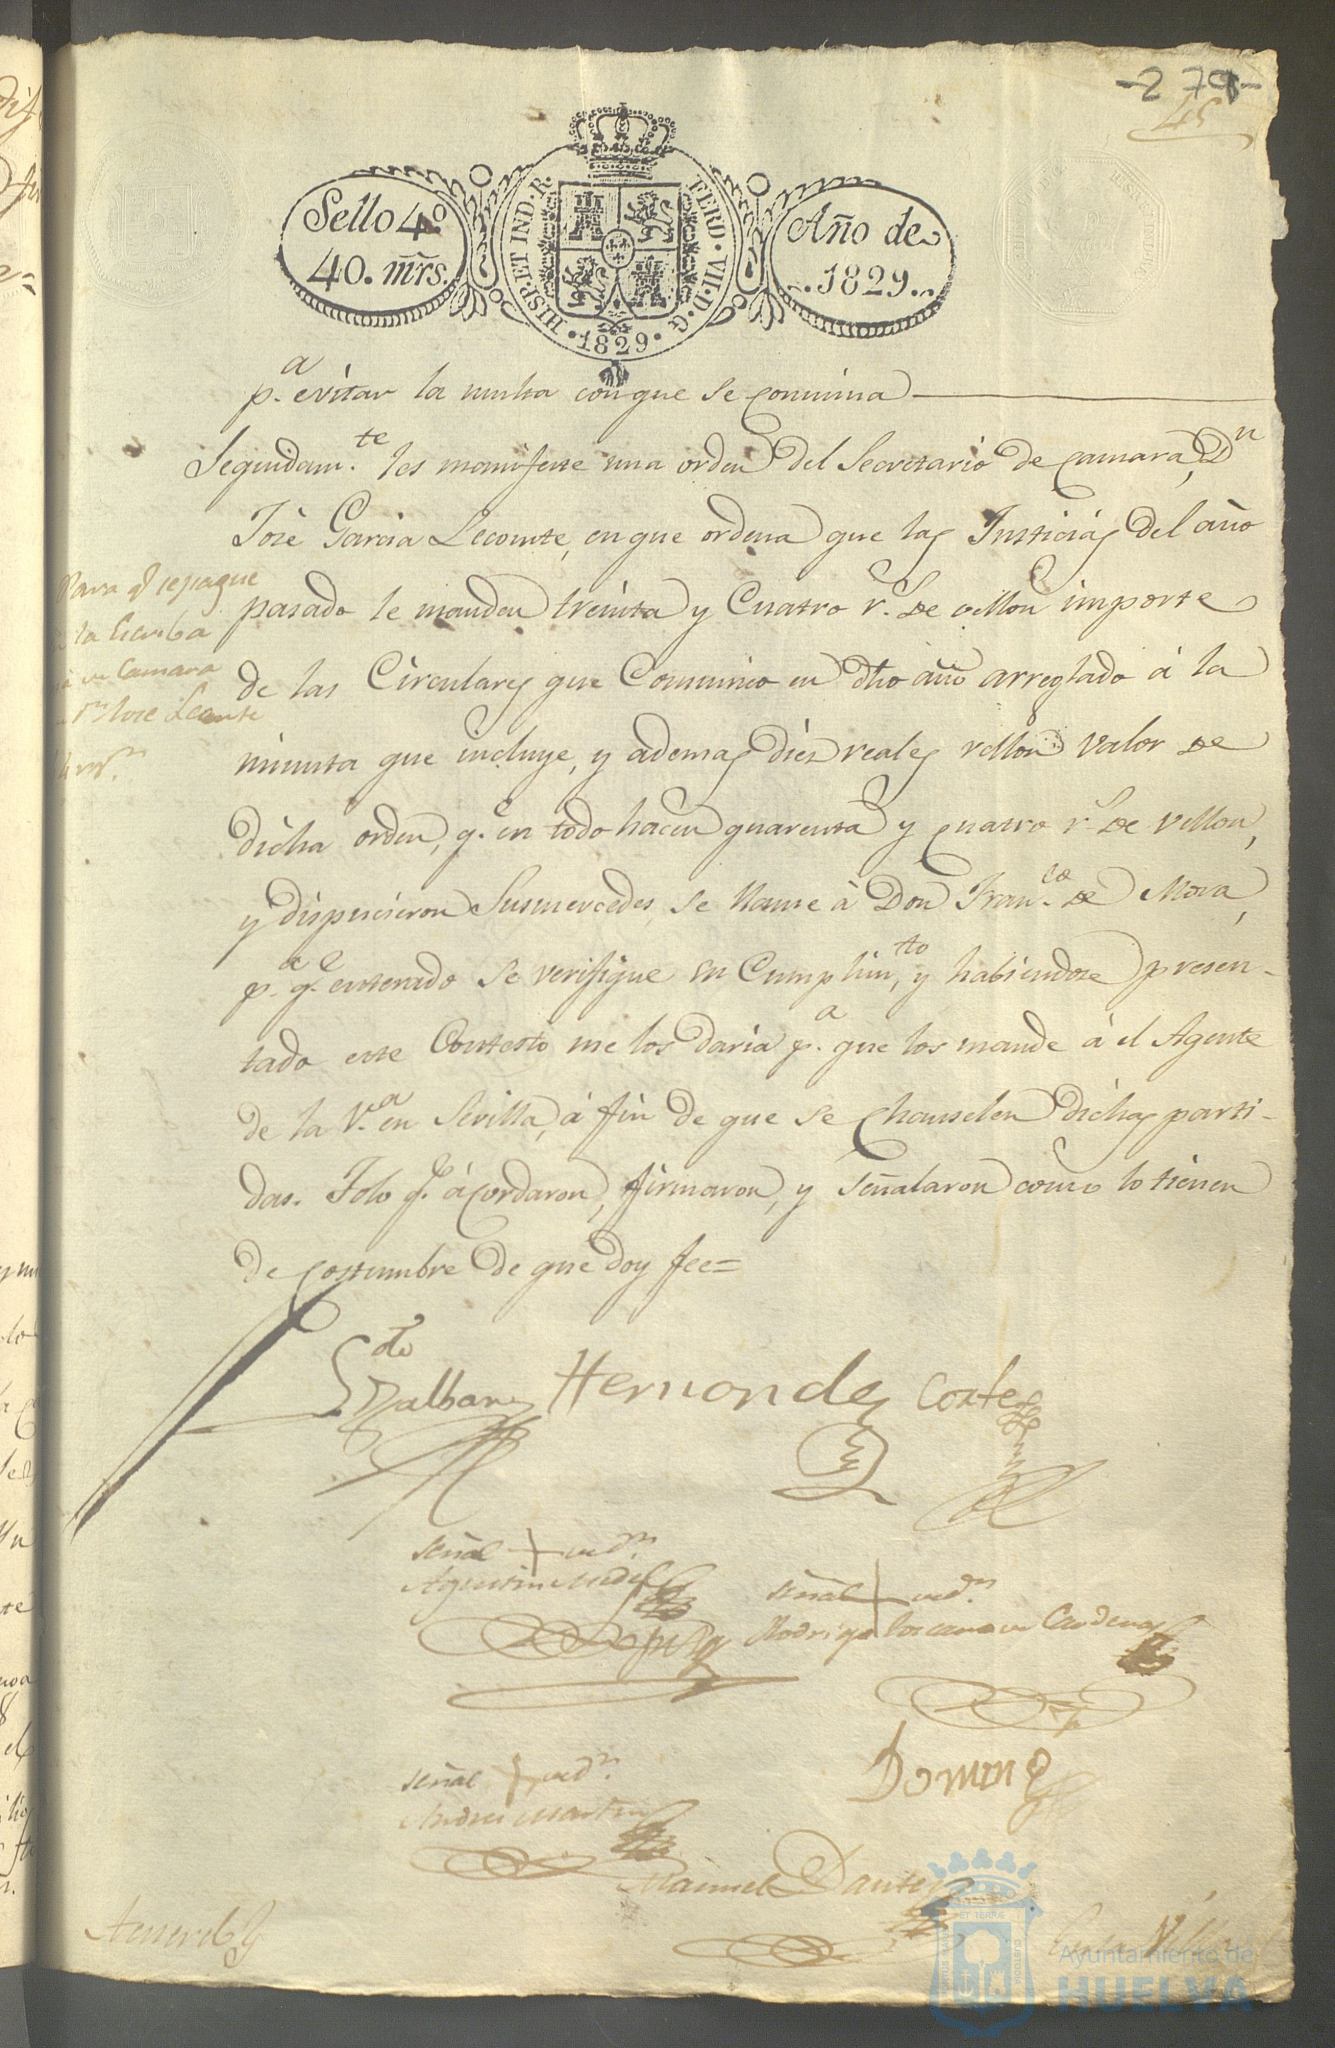 -279-
45
Sello 4º
40. mrs.
HISP. ET IND. R.
FERD. VII. D. G.
1829
Año de
1829.
p.ª evitar la multa con que se conmina
Seguidam.te les manifeste una orden del Secretario de Camara, Dn
José Garcia Lecomte, en que ordena que las Justicias del año
pasado le manden treinta y Cuatro r.s de vellon importe
de las Circulares que Comunico en dho año arreglado á la
minuta que incluye, y ademas diez reales vellon valor de
dicha orden, q.e en todo hacen quarenta y cuatro r.s de vellon,
y dispucieron Susmercedes, se llame à Don Fran.co de Mora,
p.a q.e enterado se verifique su Cumplim.tto, y habiendose presen-
tado este Contesto me los daria p.a que los mande á el Agente
de la V.a en Sevilla, á fin de que se Chanselen dichas parti-
das. Yolo q.e acordaron, firmaron, y señalaron como lo tienen
de costumbre de que doy fee=
Para q.e se pague
la Escriba
de Camara
Dn Jose Lecomte
Hernandes
Cortes
señal + de Dn.
Agustin
señal + de Dn.
Rodrigo de Cardenas
señal + de Dn.
Andres Martin
Doming
Manuel
Ayuntamiento de
HUELVA